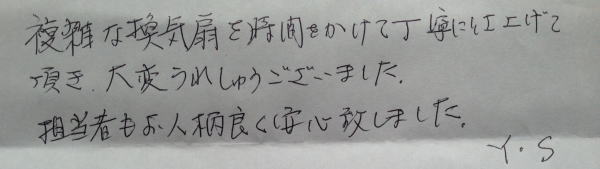 複雑な換気扇を時間をかけて丁寧に仕上げて
頂き、大変うれしゅうございました。
担当者もお人柄良く安心致しました。
Y・S